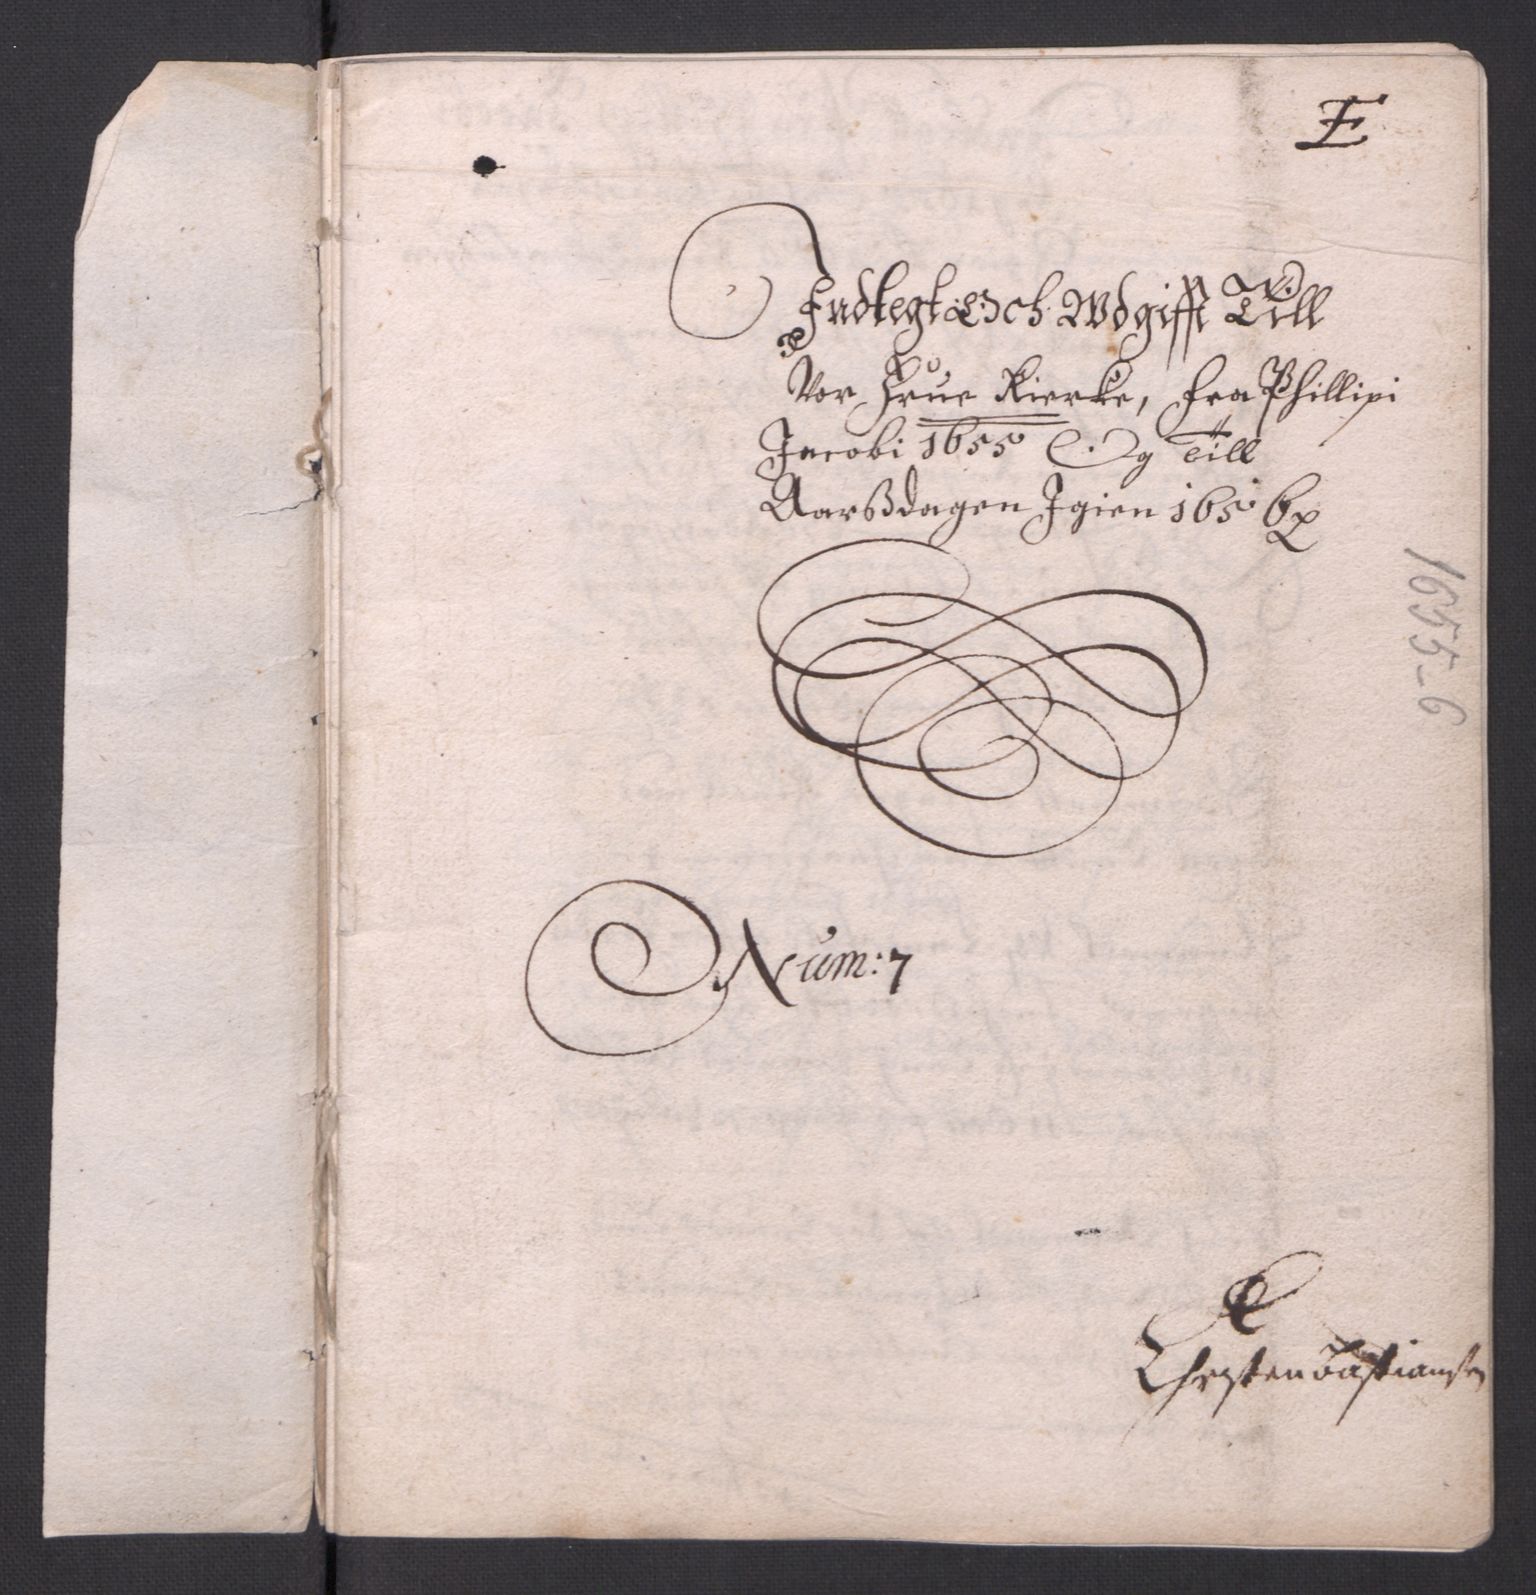 E
Indtegt Och Wdgifft Till
Vor Frue Kiercke, fra Phillipi
Jacobi 1655 Og Till
Aarßdagen Igien 1656
1655-6
Num: 7
Christen Bastiansen